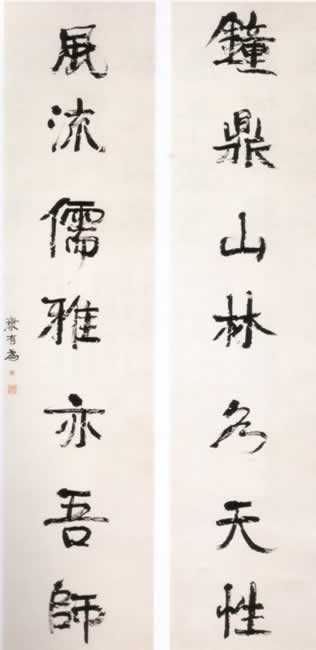 鐘鼎山林各天性
風流儒雅亦吾師
康有為